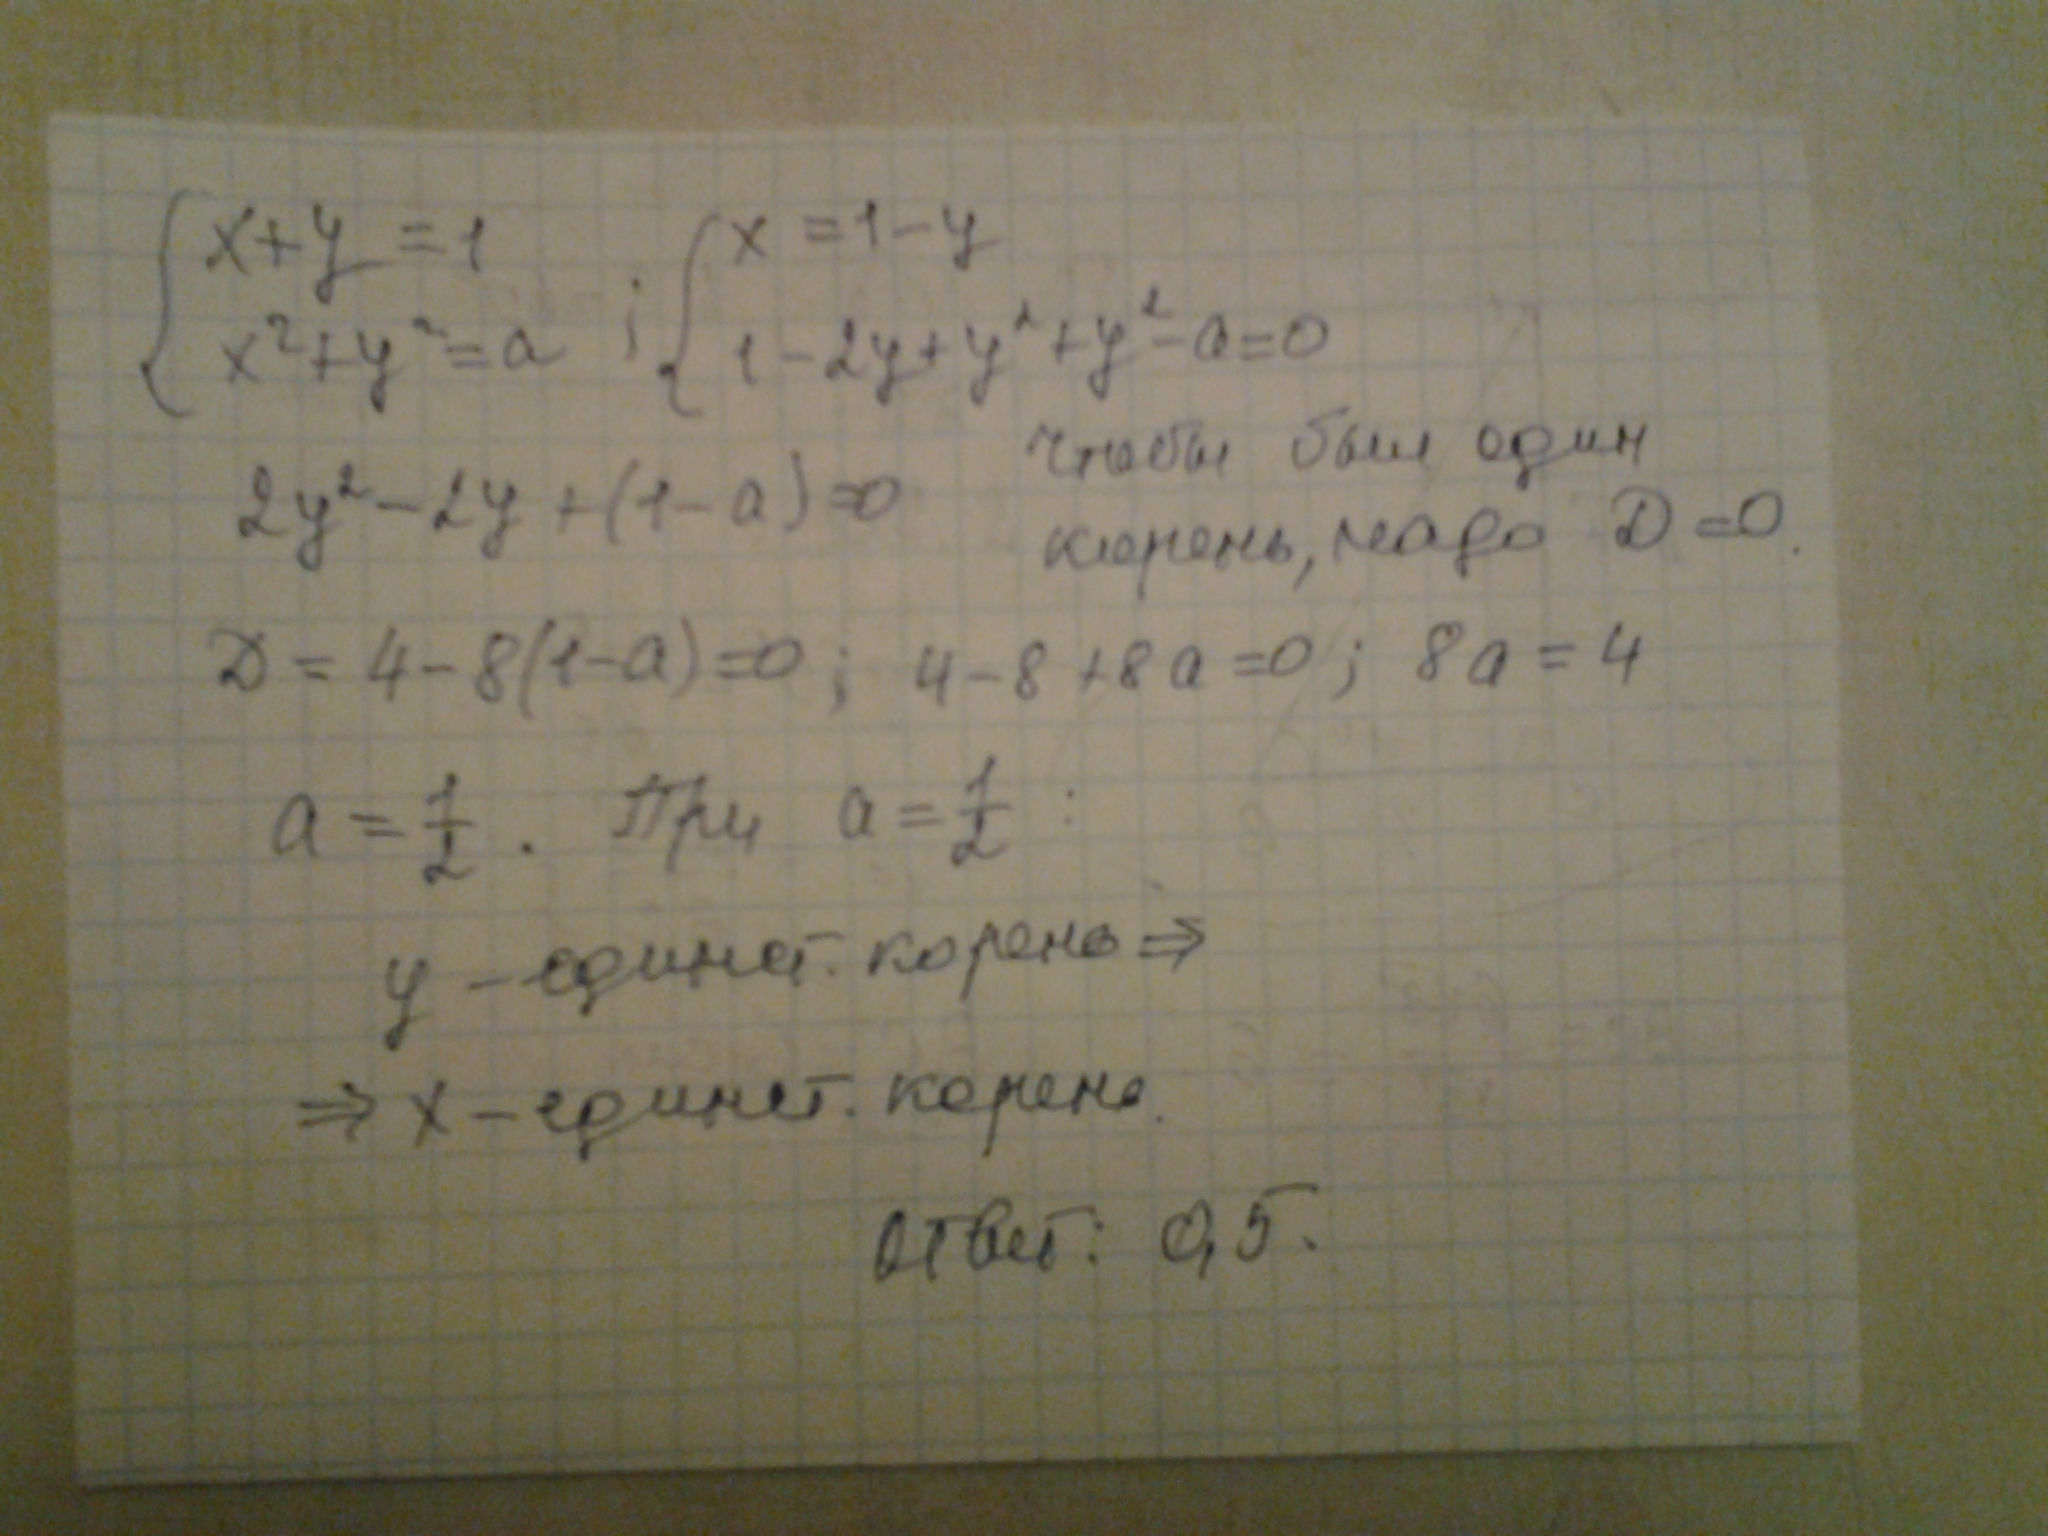 { x+y=1
x²+y²=a ; { x=1-y
1-2y+y²+y²-a=0
2y²-2y+(1-a)=0
чтобы был один
корень, надо D=0.
D=4-8(1-a)=0; 4-8+8a=0; 8a=4
a=1/2. При a=1/2:
y - единст. корень ⇒
⇒ x - единст. корень.
Ответ: 0,5.